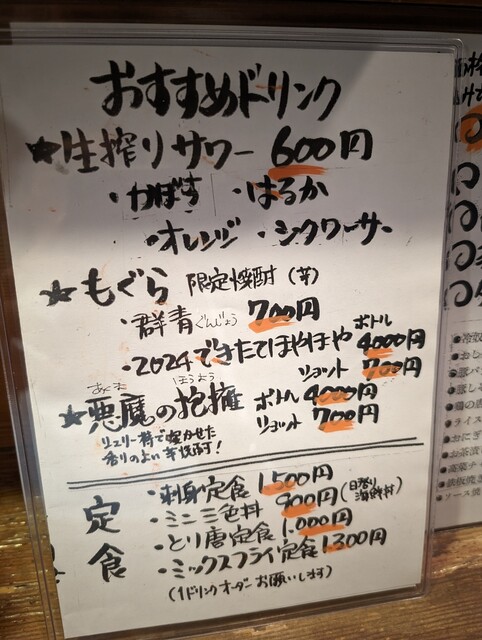 おすすめドリンク
★生搾りサワー 600円
・かぼす ・はるか
・オレンジ ・シークワーサー
★もぐら 限定焼酎(芋)
・群青 ぐんじょう 700円
・2024できたてほやほや ボトル 4000円
ショット 700円
あくま ほうよう
★悪魔の抱擁 ボトル 4000円
ショット 700円
香りのよい芋焼酎!
定食
・刺身定食 1500円
・ミニ三色丼 900円(日替り海鮮丼)
・とり唐定食 1.000円
・ミックスフライ定食 1300円
(1ドリンクオーダーお願いします)